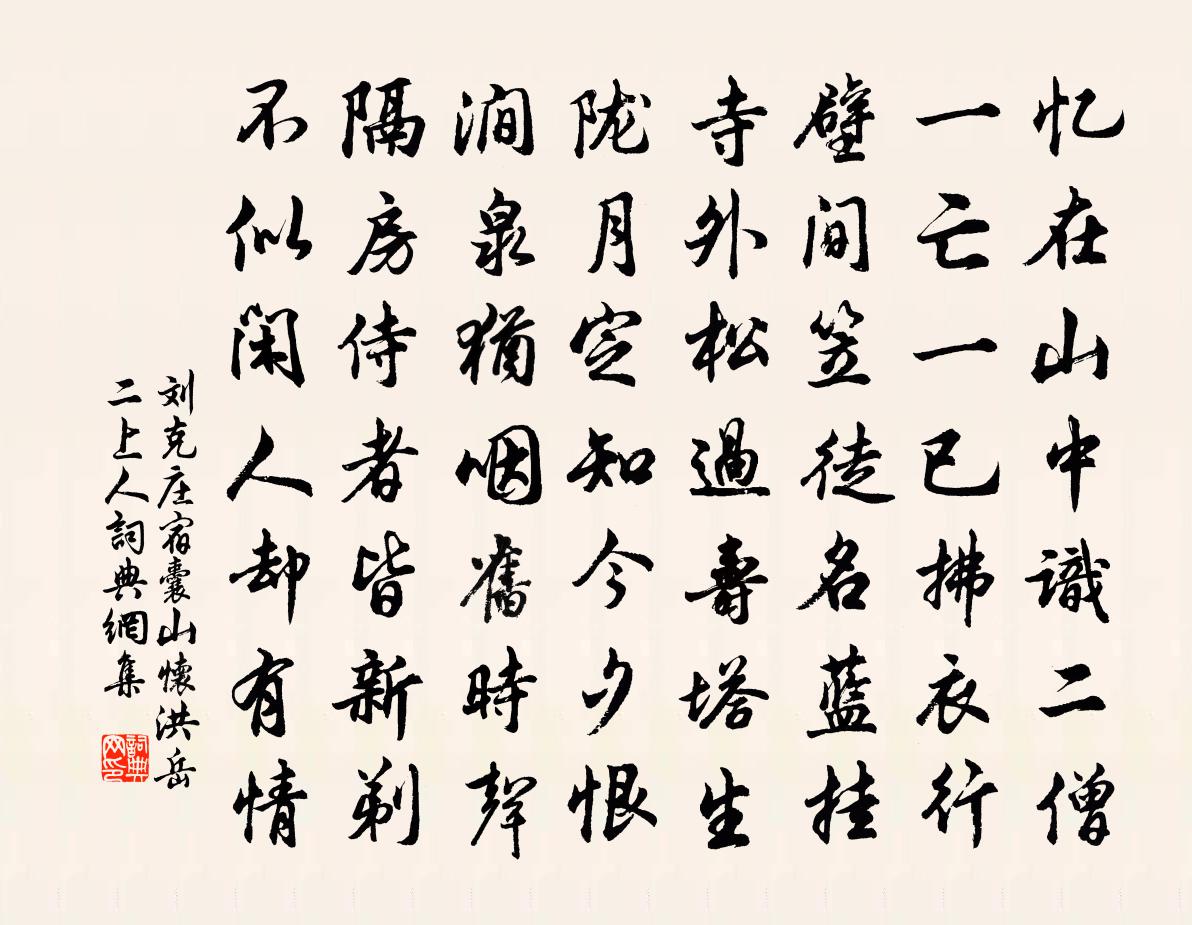 忆在山中識二僧
一亡一已拂衣行
壁间笠徒名藍挂
寺外松過壽塔生
陇月定知今夕恨
澗泉猶咽舊時聲
隔房侍者皆新剃
不似闲人却有情
刘克庄宿囊山懷洪岳
二上人詞典網集
詞典
网印